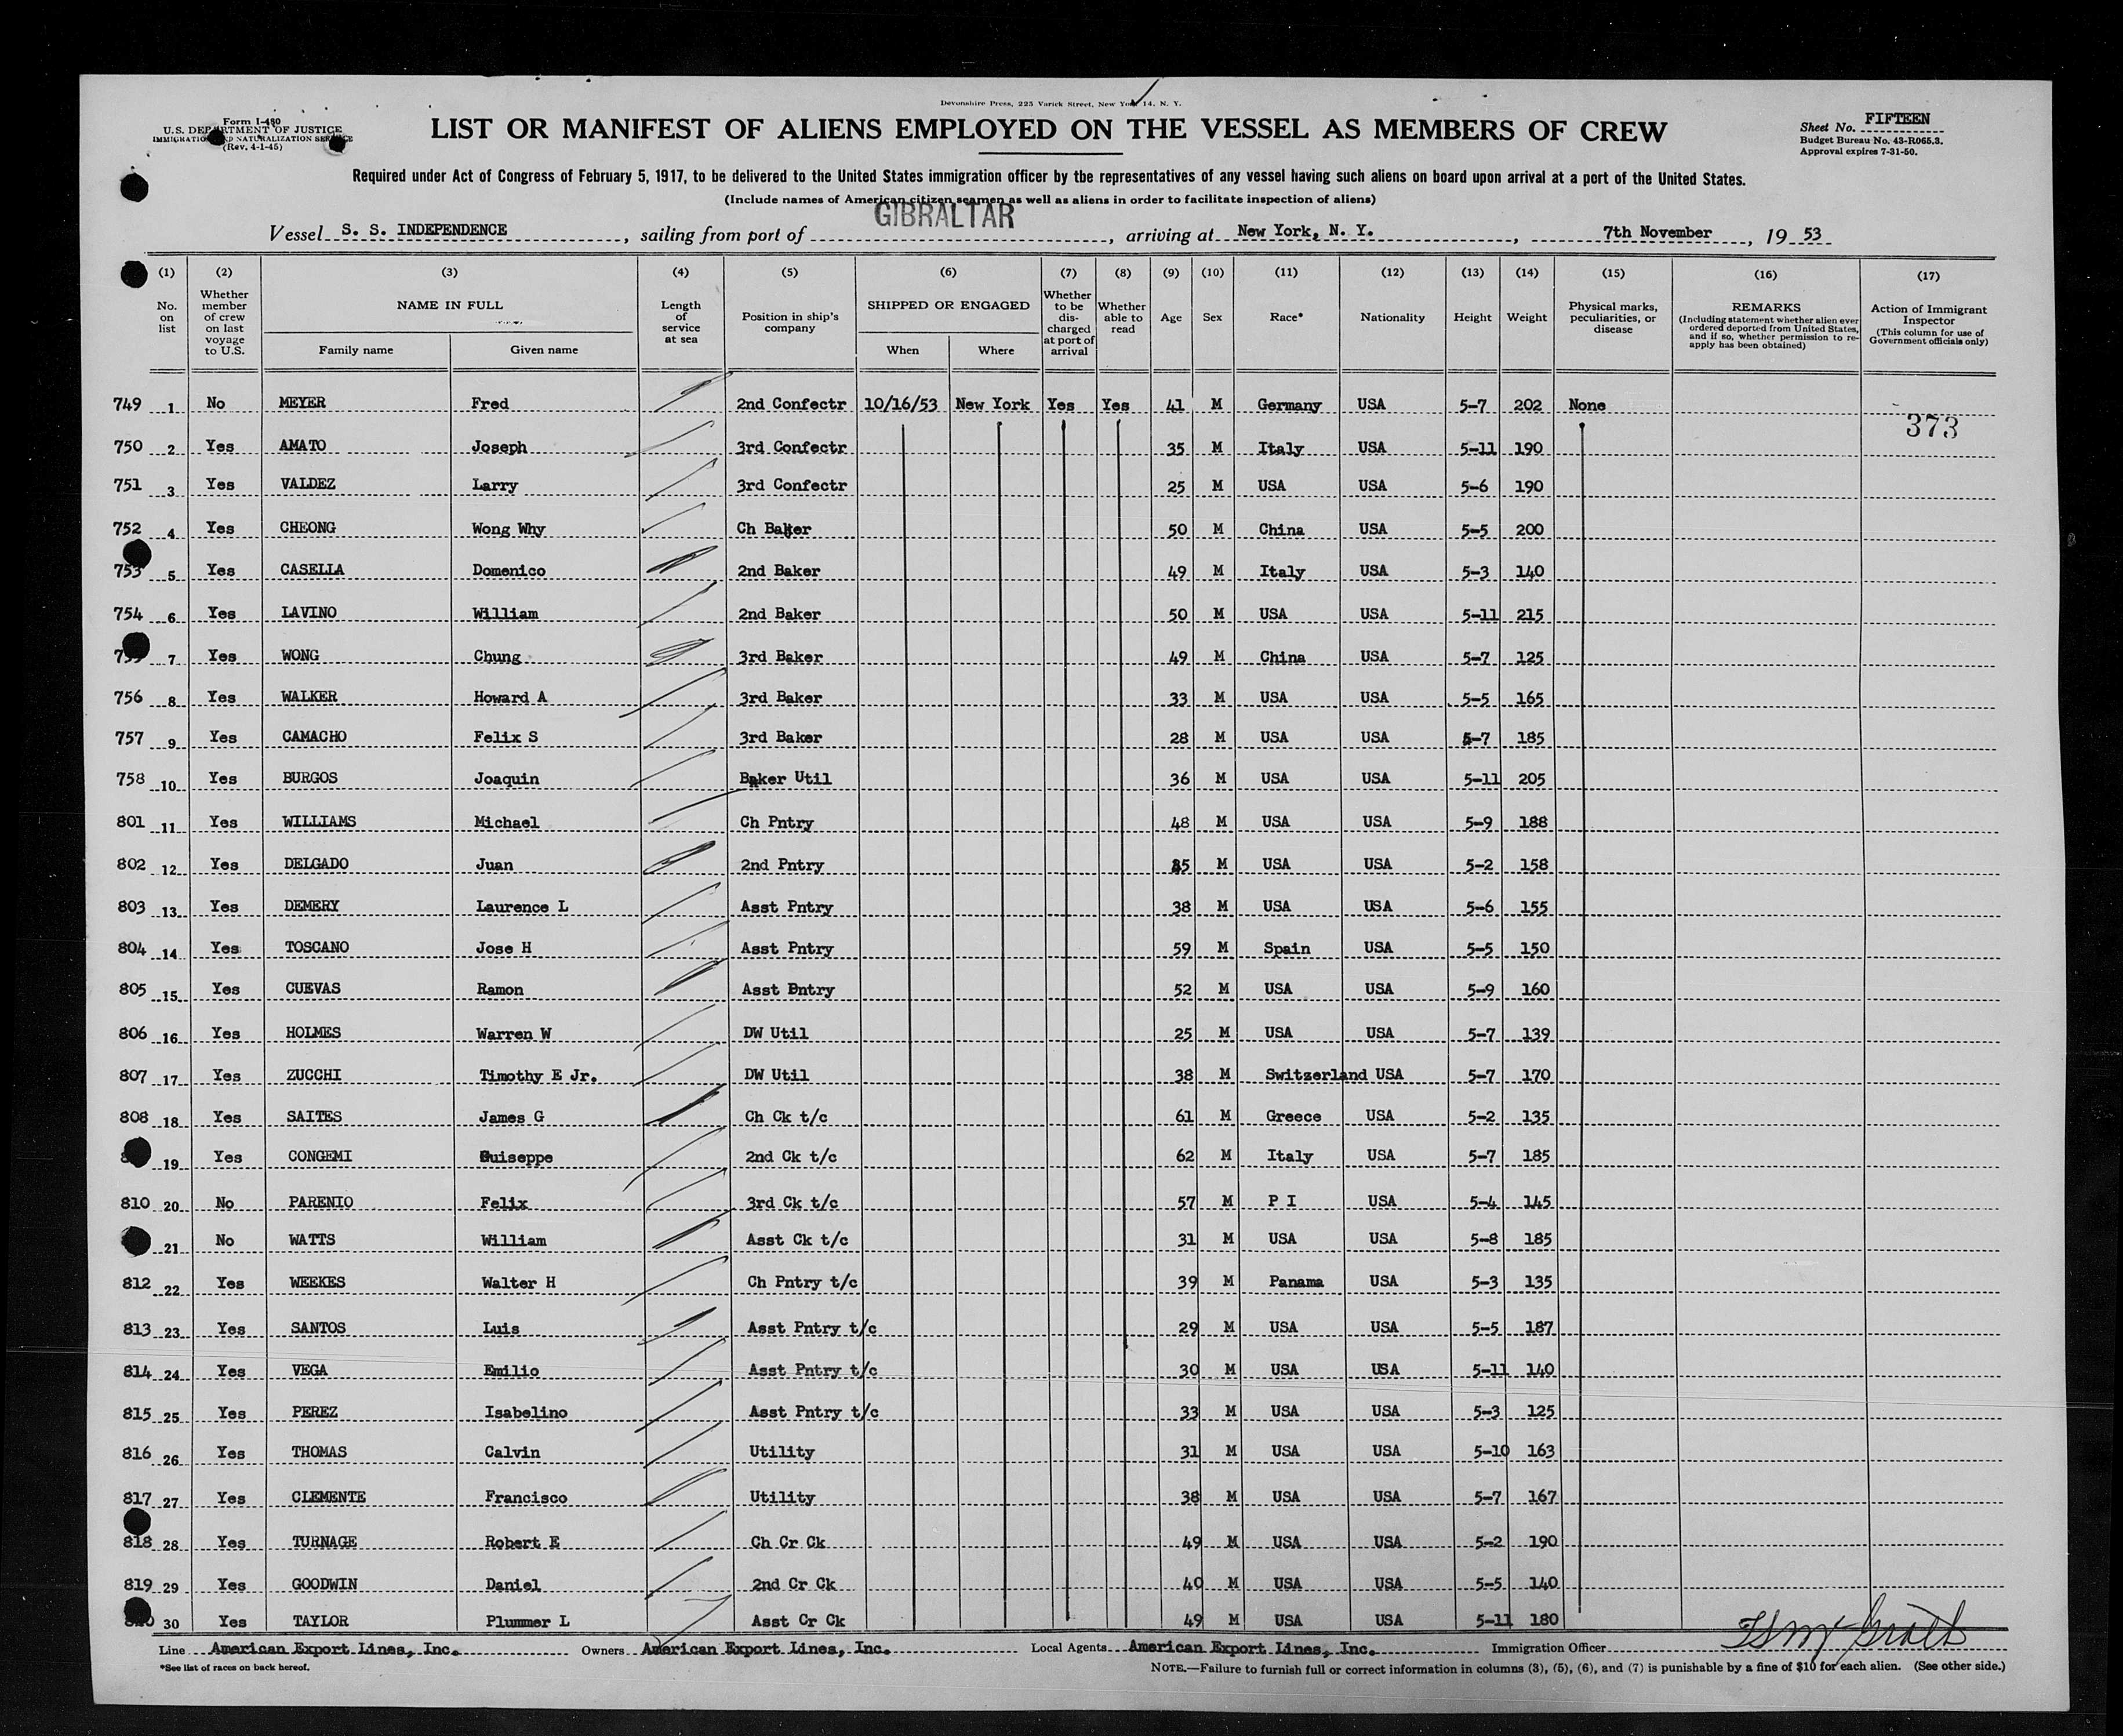 Devonshire Press, 225 Varick Street, New York 14, N. Y.
Form I-480
U.S. DEPARTMENT OF JUSTICE
IMMIGRATION AND NATURALIZATION SERVICE
(Rev. 4-1-45)
LIST OR MANIFEST OF ALIENS EMPLOYED ON THE VESSEL AS MEMBERS OF CREW
Sheet No. FIFTEEN
Budget Bureau No. 43-R065.3.
Approval expires 7-31-50.
Required under Act of Congress of February 5, 1917, to be delivered to the United States immigration officer by the representatives of any vessel having such aliens on board upon arrival at a port of the United States.
(Include names of American citizen seamen as well as aliens in order to facilitate inspection of aliens)
Vessel S. S. INDEPENDENCE, sailing from port of GIBRALTAR, arriving at New York, N. Y., 7th November, 19 53
(1) (2) (3) (4) (5) (6) (7) (8) (9) (10) (11) (12) (13) (14) (15) (16) (17)
No. on list
Whether member of crew on last voyage to U.S.
NAME IN FULL
Family name
Given name
Length of service at sea
Position in ship's company
SHIPPED OR ENGAGED
When
Where
Whether to be discharged at port of arrival
Whether able to read
Age
Sex
Race*
Nationality
Height
Weight
Physical marks, peculiarities, or disease
REMARKS
(Including statement whether alien ever ordered deported from United States, and if so, whether permission to re-apply has been obtained)
Action of Immigrant Inspector
(This column for use of Government officials only)
749 1 No MEYER Fred 2nd Confectr 10/16/53 New York Yes Yes 41 M Germany USA 5-7 202 None
373
750 2 Yes AMATO Joseph 3rd Confectr 35 M Italy USA 5-11 190
751 3 Yes VALDEZ Larry 3rd Confectr 25 M USA USA 5-6 190
752 4 Yes CHEONG Wong Why Ch Baker 50 M China USA 5-5 200
753 5 Yes CASELLA Domenico 2nd Baker 49 M Italy USA 5-3 140
754 6 Yes LAVINO William 2nd Baker 50 M USA USA 5-11 215
7 Yes WONG Chung 3rd Baker 49 M China USA 5-7 125
756 8 Yes WALKER Howard A 3rd Baker 33 M USA USA 5-5 165
757 9 Yes CAMACHO Felix S 3rd Baker 28 M USA USA 5-7 185
758 10 Yes BURGOS Joaquin Baker Util 36 M USA USA 5-11 205
801 11 Yes WILLIAMS Michael Ch Pntry 48 M USA USA 5-9 188
802 12 Yes DELGADO Juan 2nd Pntry M USA USA 5-2 158
803 13 Yes DEMERY Laurence L Asst Pntry 38 M USA USA 5-6 155
804 14 Yes TOSCANO Jose H Asst Pntry 59 M Spain USA 5-5 150
805 15 Yes CUEVAS Ramon Asst Pntry 52 M USA USA 5-9 160
806 16 Yes HOLMES Warren W DW Util 25 M USA USA 5-7 139
807 17 Yes ZUCCHI Timothy E Jr. DW Util 38 M Switzerland USA 5-7 170
808 18 Yes SAITES James G Ch Ck t/c 61 M Greece USA 5-2 135
19 Yes CONGEMI Guiseppe 2nd Ck t/c 62 M Italy USA 5-7 185
810 20 No PARENIO Felix 3rd Ck t/c 57 M P I USA 5-4 145
21 No WATTS William Asst Ck t/c 31 M USA USA 5-8 185
812 22 Yes WEEKES Walter H Ch Pntry t/c 39 M Panama USA 5-3 135
813 23 Yes SANTOS Luis Asst Pntry t/c 29 M USA USA 5-5 187
814 24 Yes VEGA Emilio Asst Pntry t/c 30 M USA USA 5-11 140
815 25 Yes PEREZ Isabelino Asst Pntry t/c 33 M USA USA 5-3 125
816 26 Yes THOMAS Calvin Utility 31 M USA USA 5-10 163
817 27 Yes CLEMENTE Francisco Utility 38 M USA USA 5-7 167
818 28 Yes TURNAGE Robert E Ch Cr Ck 49 M USA USA 5-2 190
819 29 Yes GOODWIN Daniel 2nd Cr Ck 40 M USA USA 5-5 140
30 Yes TAYLOR Plummer L Asst Cr Ck 49 M USA USA 5-11 180
Line American Export Lines, Inc. Owners American Export Lines, Inc. Local Agents American Export Lines, Inc. Immigration Officer
*See list of races on back hereof.
NOTE.—Failure to furnish full or correct information in columns (3), (5), (6), and (7) is punishable by a fine of $10 for each alien. (See other side.)